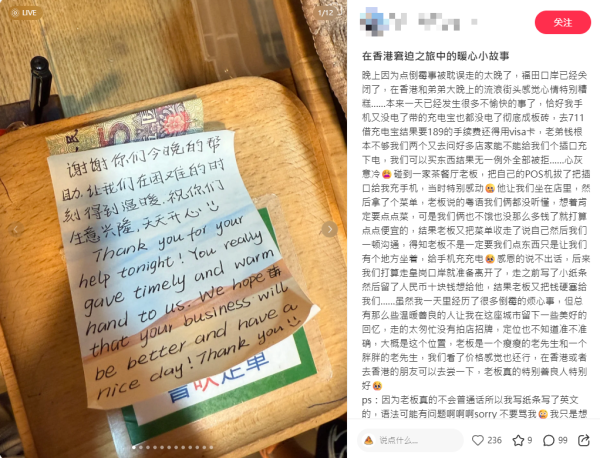 LIVE
1/12
谢谢你们今晚的帮
助,让我们在困难的时
刻得到温暖,祝你们
生意兴隆,天天开心
Thank you for your
help tonight! You really
gave timely and warm
hand to us. We hope
that your business will
be better and have a
nice day! Thank you
走单
关注
在香港窘迫之旅中的暖心小故事
晚上因为点倒霉事被耽误走的太晚了，福田口岸已经关
闭了，在香港和弟弟大晚上的流浪街头感觉心情特别糟
糕......本来一天已经发生很多不愉快的事了，恰好我手
机又没电了带的充电宝也都没电了彻底成板砖，去711
借充电宝结果要189的手续费还得用visa卡，老弟钱根
本不够我们两个又去问好多店家能不能给我们个插口充
下电，我们可以买东西结果无一例外全部被拒......心灰
意冷碰到一家茶餐厅老板，把自己的POS机拔了把插
口给我充手机，当时特别感动他让我们坐在店里，然
后拿了个菜单，老板说的粤语我们俩都没听懂，想着肯
定要点点菜，可是我们俩也不饿也没那么多钱了就打算
点点便宜的，结果老板又把菜单收走了说自己然后我们
一顿沟通，得知老板不是一定要我们点东西只是让我们
有个地方坐着，给手机充充电感恩的说不出话，后来
我们打算走皇岗口岸就准备离开了，走之前写了小纸条
然后留了人民币十块钱想给他，结果老板又把钱硬塞给
我们......虽然我一天里经历了很多倒霉的烦心事，但总
有那么些温暖善良的人让我在这座城市留下一些美好的
回忆，走的太匆忙没有拍店招牌，定位也不知道准不准
确，大概是这个位置，老板是一个瘦瘦的老先生和一个
胖胖的老先生，我们看了价格感觉也还行，在香港或者
去香港的朋友可以去尝一下，老板真的特别善良人特别
好
ps：因为老板真的不会普通话所以我写纸条写了英文
的，语法可能有问题啊啊啊sorry 不要骂我我只是想
说点什么...
236
9
99